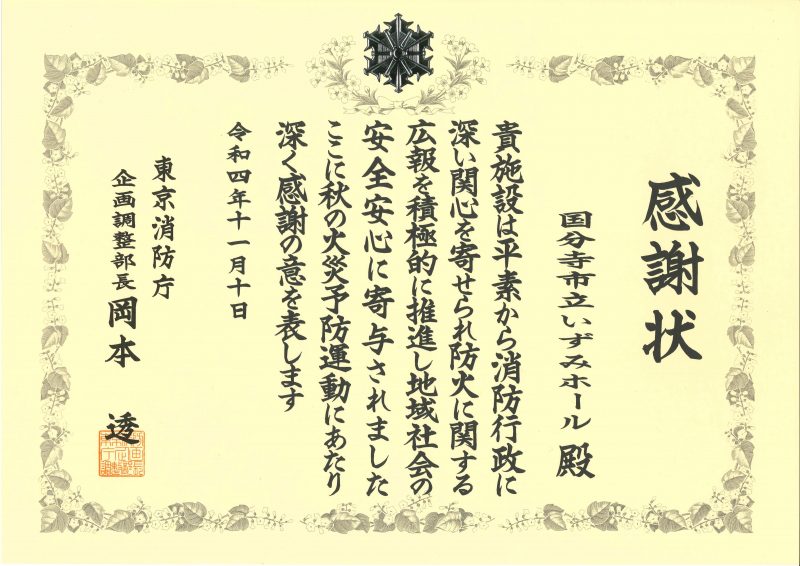 感謝状
国分寺市立いずみホール 殿
貴施設は平素から消防行政に
深い関心を寄せられ防火に関する
広報を積極的に推進し地域社会の
安全安心に寄与されました
ここに秋の火災予防運動にあたり
深く感謝の意を表します
令和四年十一月十日
東京消防庁
企画調整部長 岡本 透